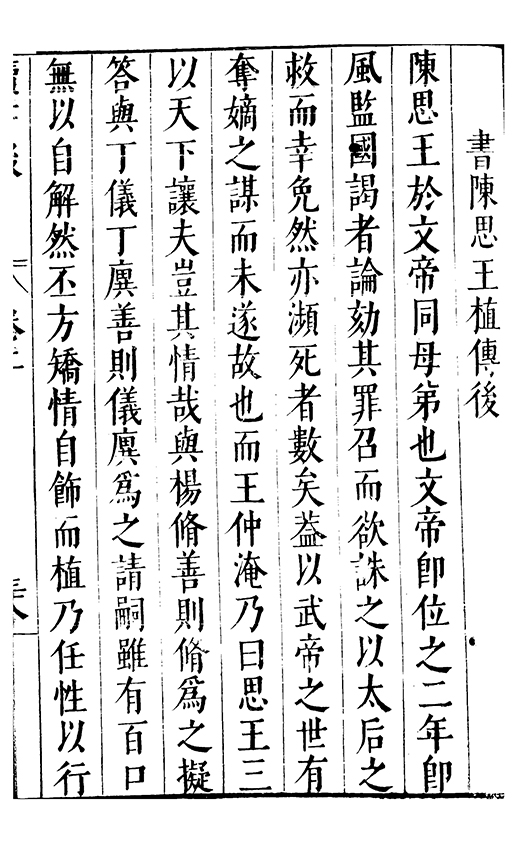 書陳思王植傳後
陳思王於文帝同母弟也文帝卽位之二年卽
風監國謁者論劾其罪召而欲誅之以太后之
救而幸免然亦瀕死者數矣葢以武帝之世有
奪嫡之謀而未遂故也而王仲淹乃曰思王三
以天下讓夫豈其情哉與楊脩善則脩爲之擬
答與丁儀丁廙善則儀廙爲之請嗣雖有百口
無以自解然丕方矯情自飾而植乃任性以行
讀書後
卷二